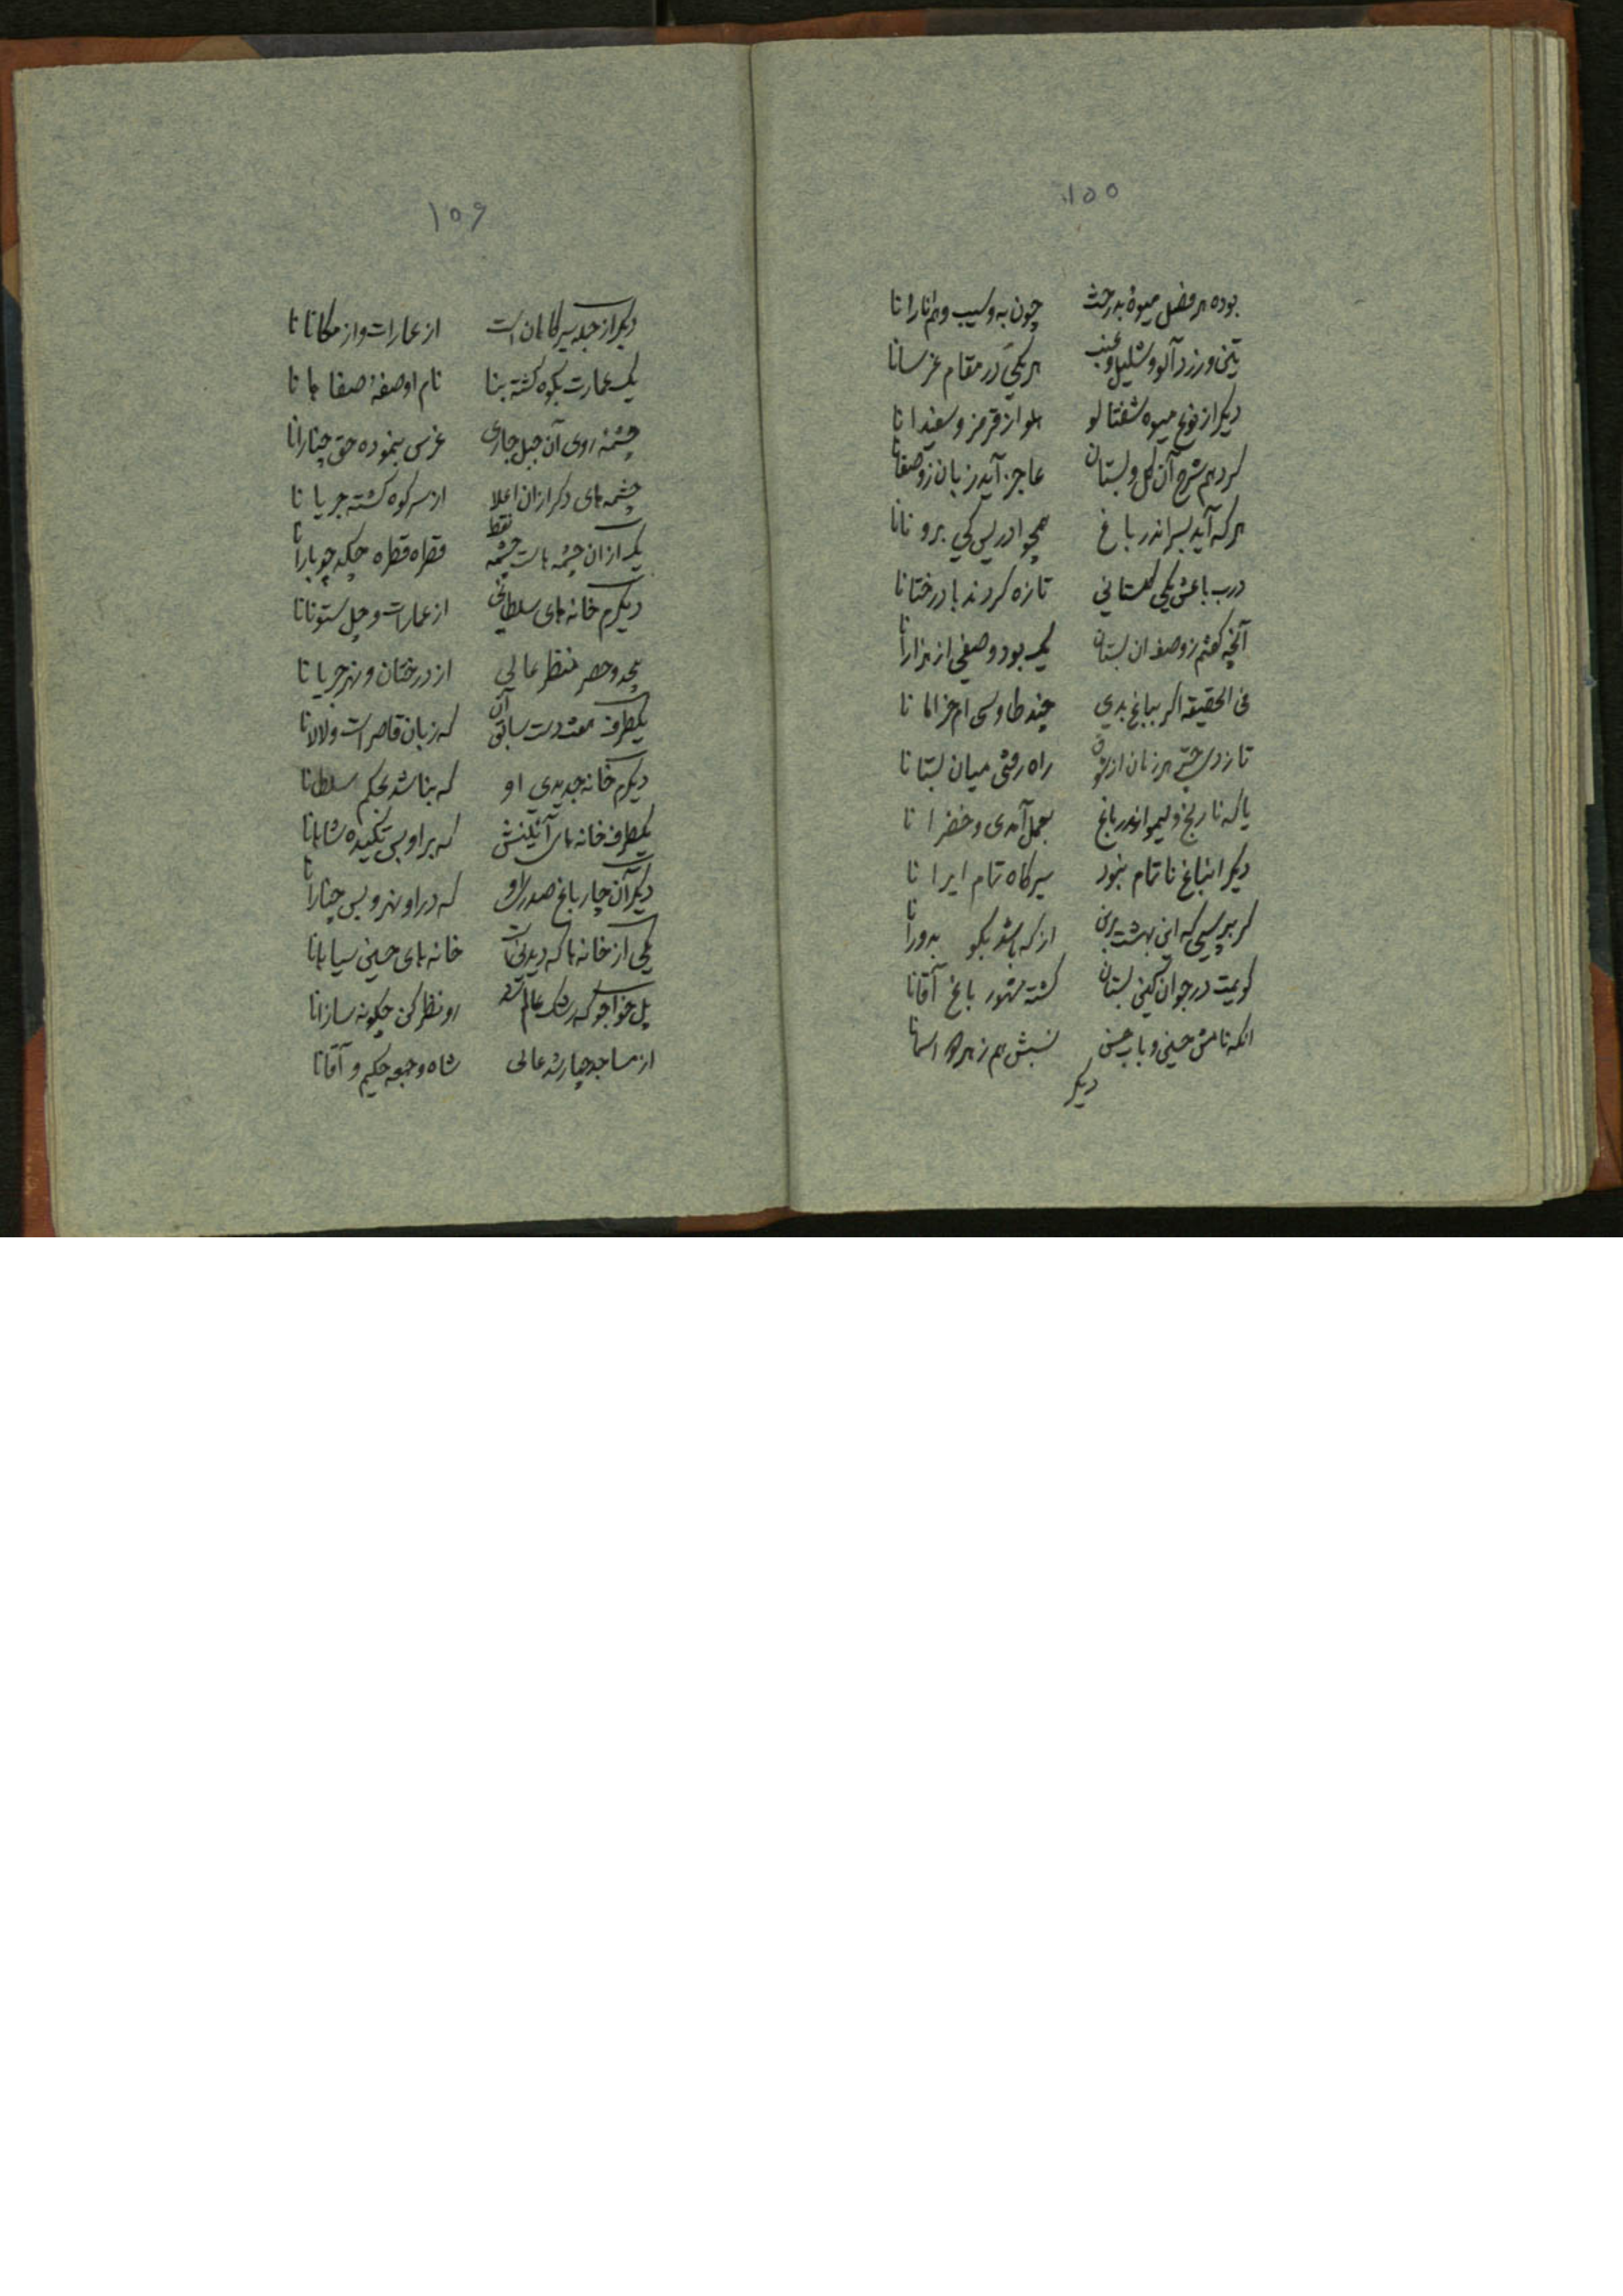 ۱۵۵
بوده هر فصل میوهٔ بدرخت چون به و سیب و هم انارانا
تین و زرد آلو و شلیل و عنب هر یکی در مقام غرسانا
دیکر از نوع میوه شفتالو هلو از قرمز و سفیدانا
کردهم شرح آن کل و بستان عاجز آید زبان ز وصفانا
هرکه آید بسر اندر باغ همچو ادریس کی برونانا
درب باغش یکی کلستانی تازه کردند با درختانا
آنچه کفتم ز وصف ان بستان یک بود وصفی از هزارانا
فی الحقیقه اکر بباغ بدی چند طاوسی ام خرامانا
تا زدی هر زمان از شوق راه رفتی میان بستانا
یا که نارنج و لیمو اندر باغ بعمل آمدی و خضرانا
دیکر اینباغ ناتمام نبود سیرکاه تمام ایرانا
کر بپرسی که این بهشت برین از که باشد بکو بدورانا
کویمت در جوان کین بستان کشته مشهور باغ آقانا
انکه نامش حسین و باب حسن نسبش هم ز اسمانا
دیکر
۱۵۶
دیکر از جمله سیرکاهان است از عمارات و از مکانانا
یک عمارت بکوه کشته بنا نام او صفهٔ صفاهانا
چشمه روی آن جبل جاری غرس بنموده حق چنارانا
چشمه های دکر ازان اعلا از سر کوه کشته جریانا
یک ازان چشمه هاست چشمه نقط قطره قطره چکد چو بارانا
دیکرم خانه های سلطانی از عمارات و چل ستونانا
بیحد و حصر منظر عالی از درختان و نهر جریانا
یکطرف هشت دست سابق آن که زبان قاصر است و لالانا
دیکرم خانه جدیدی او که بنا شد بحکم سلطانا
یکطرف خانه های آئینش که بر او بس تکیده شاهانا
دیکر آن چار باغ صدر او که در او نهر و بس چنارانا
یکی از خانه ها که دیدنیست خانه های حسین سیاهانا
پل خواجو که رشک عالم شد رو نظر کن چکونه سازانا
از مساجد چهار شد عالی شاه و جمعه حکیم و آقانا